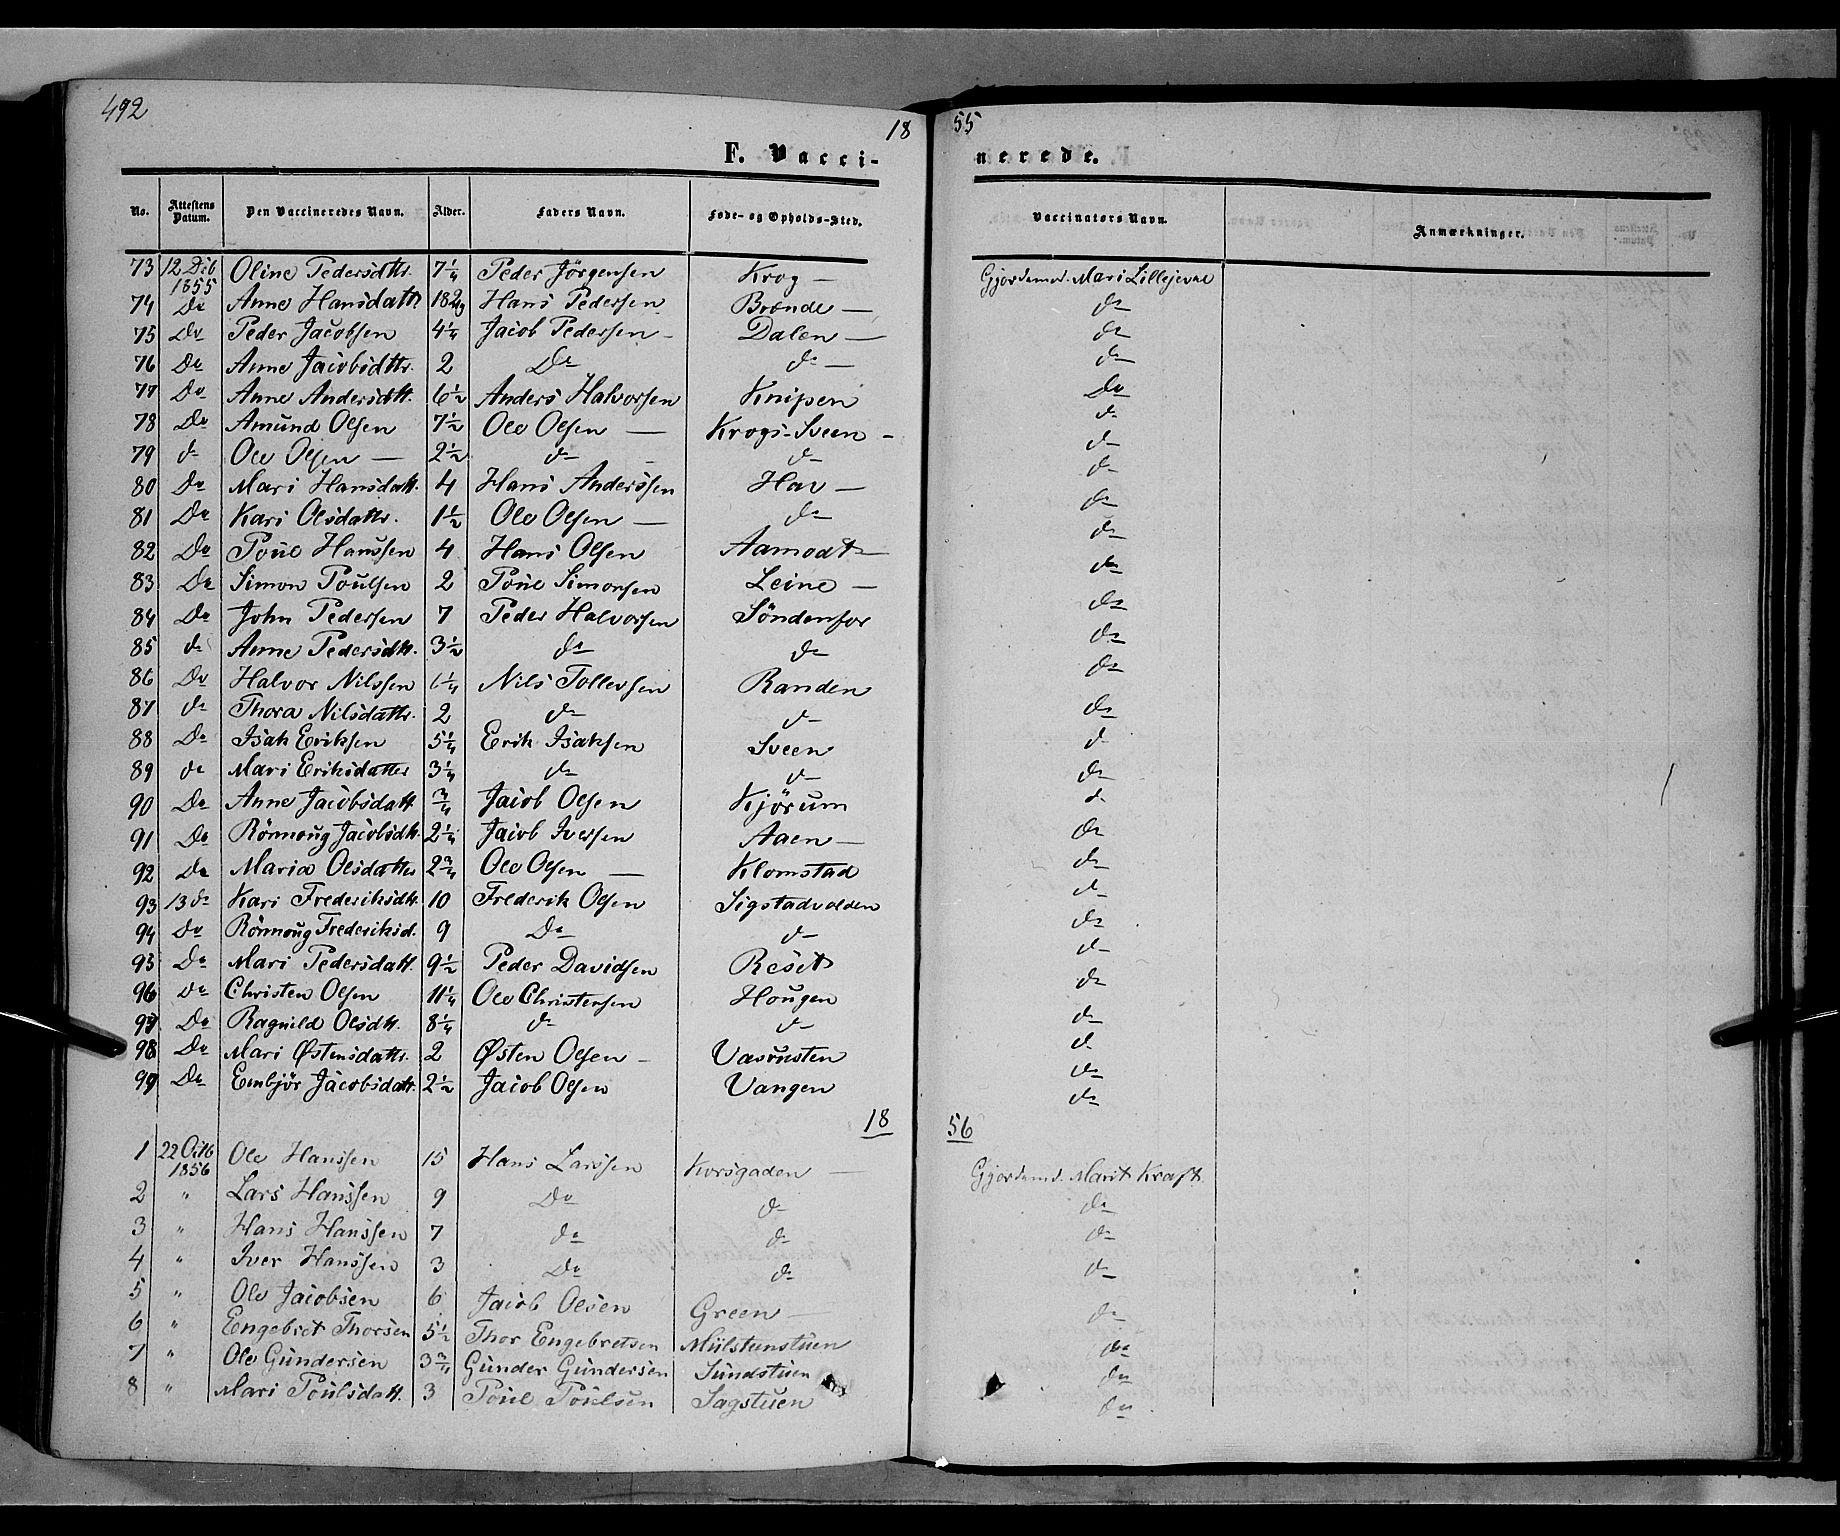 492
18 55
F. Vacci- nerede.
No. Attestens Datum. Den Vaccineredes Navn. Alder. Faders Navn. Føde- og Opholds-Sted. Vaccinators Navn. Anmærkninger.
73 12 Dcb 1855 Oline Pedersdttr. 7 1/4 Peder Jörgensen Krog — Gjordemd. Mari Lillejevne
74 Do Anne Hansdattr Hans Pedersen Brænde — do
75 Do Peder Jacobsen 4 1/4 Jacob Pedersen - Dalen — do
76 Do Anne Jacobsdttr. 2 Do do — do
77 Do Anne Andersdtt. 6 1/2 Anders Halvorsen Knipen Do
78 Do Amund Olsen 7 1/2 Ole Olsen — Krogs-Sveen - do
79 do Ole Olsen — 2 1/2 do do do
80 Do Mari Hansdatt. 4 Hans Anderssen Hav — do
81 Do Kari Olsdattr. 1 1/2 Ole Olsen — do do
82 Do Poul Hanssen 4 Hans Olsen Aamodt do
83 Do Simon Poulsen 2 Poul Simonsen Leine — do
84 Do John Pedersen 7 Peder Halvorsen Söndenfor do
85 do Anne Pedersdtt. 3 1/2 do do do
86 Do Halvor Nilssen 6 1/4 Nils Tollevsen Randen do
87 do Thora Nilsdattr. 2 do do do
88 Do Isak Eriksen 5 1/4 Erik Isaksen Sveen do
89 do Mari Eriksdatter 3 1/4 do do do
90 Do Anne Jacobsdatt. 3/4 Jacob Olsen Kjörum do
91 Do Rönnoug Jacobsdtt. 2 1/4 Jacob Iversen Aaen — do
92 Do Maria Olsdatter 2 3/4 Ole Olsen — Klomstad do
93 13 do Kari Frederiksdtt. 10 Frederik Olsen Sigstadvolden do
94 Do Rönnoug Frederiksd. 9 Do do do
95 Do Mari Pedersdatt. 9 1/2 Peder Davidsen Reset do
96 Do Christen Olsen 11 1/4 Ole Christensen Hougen do
97 Do Ragnild Olsdtt. 8 1/4 do do do
98 Do Mari Østensdattr. 2 Østen Olsen - Vasrusten do
99 Do Embjör Jacobsdatt. 2 1/2 Jacob Olsen Vangen do
18 56
1 22 Octb 1856 Ole Hanssen 15 Hans Larssen Korsgaden — Gjordemd. Marit Kraft.
2 " Lars Hanssen 9 Do do do
3 " Hans Hanssen 7 do do do
4 " Iver Hanssen 3 Do do do
5 " Ole Jacobsen 6 Jacob Olsen Green — do
6 " Engebret Thorsen 5 1/2 Thor Engebretsen Mulstunstuen do
7 " Ole Gundersen 3 3/4 Gunder Gundersen Sundstuen do
8 " Mari Poulsdatt. 3 Poul Poulsen Sagstuen do